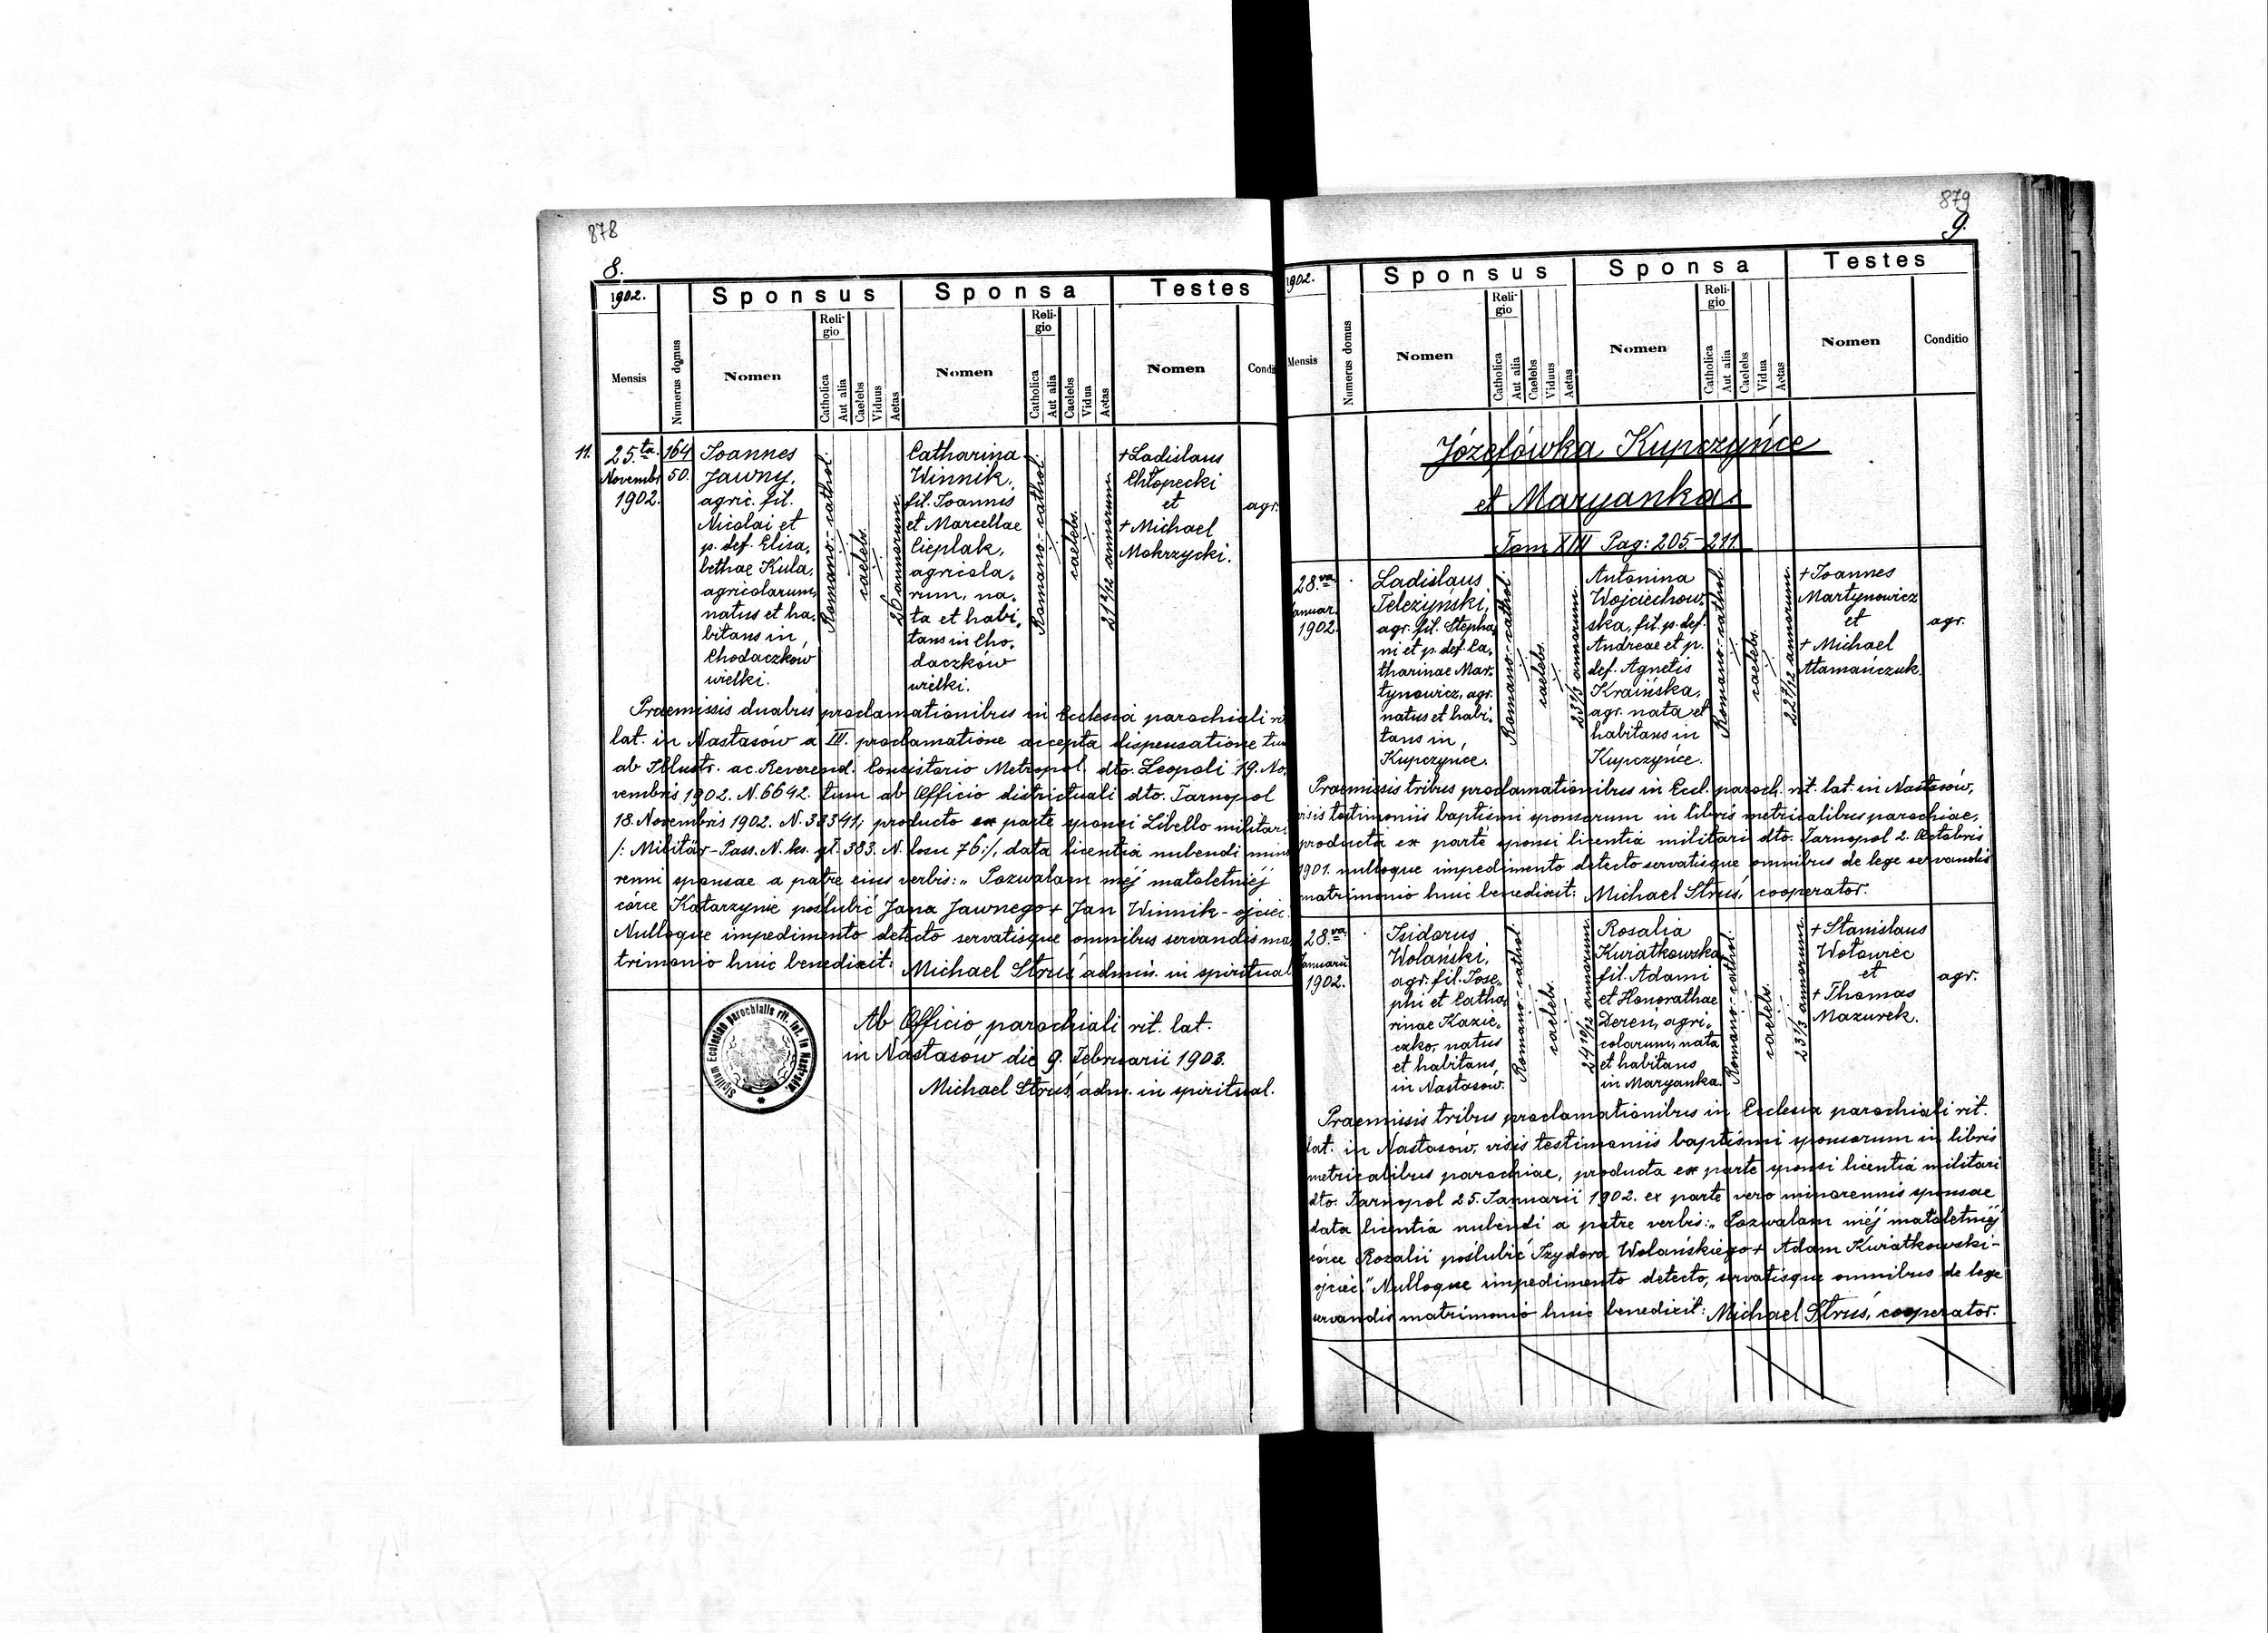 878
8.
1902.
Sponsus
Sponsa
Testes
Mensis
Numerus domus
Nomen
Religio
Catholica
Aut alia
Caelebs
Viduus
Aetas
Nomen
Religio
Catholica
Aut alia
Caelebs
Vidua
Aetas
Nomen
Condi
11.
25.ta
Novembr.
1902.
164
50.
Joannes
Jawny,
agric. fil.
Nicolai et
p. def. Elisa,
bethae Kula,
agricolarum,
natus et ha,
bitans in
Chodaczków
wielki.
Romano-cathol.
caelebs.
26 annorum
Catharina
Winnik,
fil. Joannis
et Marcellae
Cieplak,
agricola,
rum, na,
ta et habi,
tans in Cho,
daczków
wielki.
Romano-cathol.
caelebs.
annorum
+ Ladislaus
Chłopecki
et
+ Michael
Mokrzycki.
agr.
Praemissis duabus proclamationibus in Ecclesia parochiali rit
lat. in Nastasów a III. proclamatione accepta dispensatione tum
ab Illustr. ac Reverend. Consistorio Metropol. dto. Leopoli 19. No,
vembris 1902. N. 6642. tum ab Officio districtuali dto. Tarnopol
18. Novembris 1902. N. 33341; producto ex parte sponsi Libello militari
/: Militär-Pass. N. ks. gł. 383. N. losu 76:/, data licentia nubendi mino
renni sponsae a patre eius verbis: „Pozwalam mėj małoletniėj
córce Katarzynie poślubić Jana Jawnego + Jan Winnik - ojciec.
Nulloque impedimento detecto servatisque omnibus servandis ma,
trimonio huic benedixit: Michael Struś admin. in spiritual
Sigillum Ecclesiae parochialis rit. lat. in Nastasów.
Ab Officio parochiali rit. lat.
in Nastasów die 9. Februarii 1903.
Michael Struś, adm. in spiritual.
879
9.
1902.
Sponsus
Sponsa
Testes
Mensis
Numerus domus
Nomen
Religio
Catholica
Aut alia
Caelebs
Viduus
Aetas
Nomen
Religio
Catholica
Aut alia
Caelebs
Vidua
Aetas
Nomen
Conditio
Józefówka, Kupczyńce
et Maryanka
Tom XIII Pag: 205-211
28.va
Januar.
1902.
Ladislaus
Teleżyński,
agr. fil. Stepha
ni et p. def. Ca,
tharinae Mar,
tynowicz, agr.
natus et habi,
tans in
Kupczyńce.
Romano-cathol.
caelebs.
23 1/3 annorum
Antonina
Wojciechow,
ska, fil. p. def.
Andreae et p.
def. Agnetis
Kraińska,
agr. nata et
habitans in
Kupczyńce.
Romano-cathol.
caelebs.
annorum.
+ Joannes
Martynowicz
et
+ Michael
Atamańczuk.
agr.
Praemissis tribus proclamationibus in Eccl. paroch. rit. lat. in Nastasów,
visis testimoniis baptismi sponsorum in libris metricalibus parochiae,
producta ex parte sponsi licentia militari dto. Tarnopol 2. Octobris
1901. nulloque impedimento detecto servatisque omnibus de lege servandis
matrimonio huic benedixit: Michael Struś, cooperator.
28.va
Januarii
1902.
Isidorus
Wolański,
agr. fil. Jose,
phi et Catha,
rinae Kazie,
czko, natus
et habitans
in Nastasów.
Romano-cathol.
caelebs.
24 10/12 annorum
Rosalia
Kwiatkowska
fil. Adami
et Honorathae
Dereń, agri,
colarum, nata
et habitans
in Maryanka.
Romano-cathol.
caelebs.
23 1/3 annorum
+ Stanislaus
Wołowiec
et
+ Thomas
Mazurek.
agr.
Praemissis tribus proclamationibus in Ecclesia parochiali rit.
lat. in Nastasów, visis testimoniis baptismi sponsorum in libris
metricalibus parochiae, producta ex parte sponsi licentia militari
dto. Tarnopol 25. Januarii 1902. ex parte vero minorennis sponsae
data licentia nubendi a patre verbis: „Pozwalam mėj małoletniėj
córce Rozalii poślubić Izydora Wolańskiego + Adam Kwiatkowski -
ojciec." Nulloque impedimento detecto, servatisque omnibus de lege
servandis matrimonio huic benedixit: Michael Struś, cooperator.